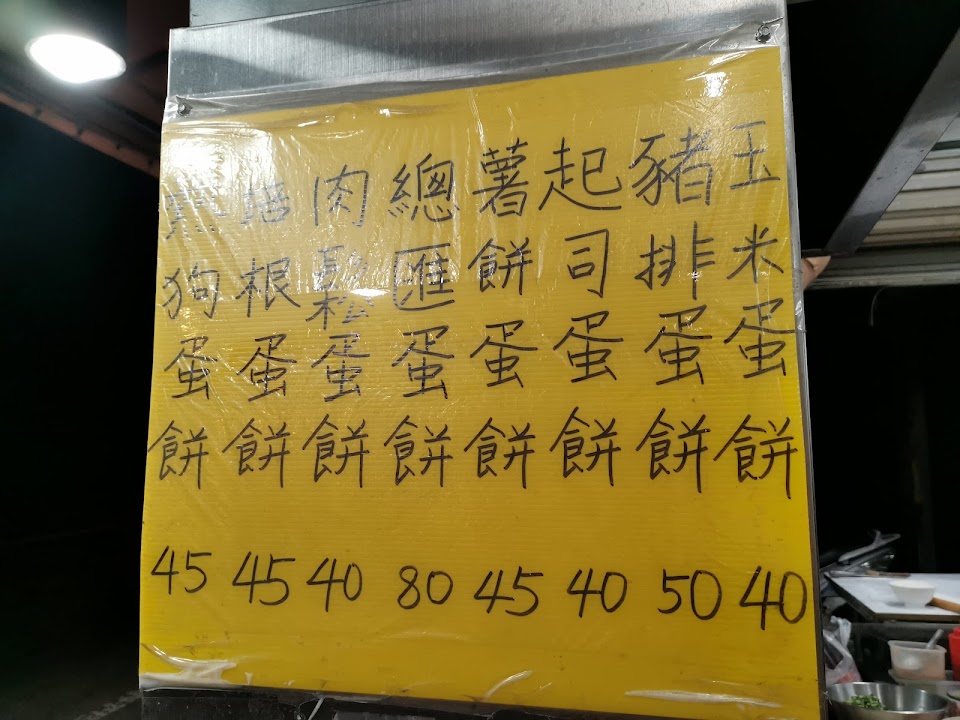 玉米蛋餅 40
豬排蛋餅 50
起司蛋餅 40
薯餅蛋餅 45
總匯蛋餅 80
肉鬆蛋餅 40
培根蛋餅 45
熱狗蛋餅 45